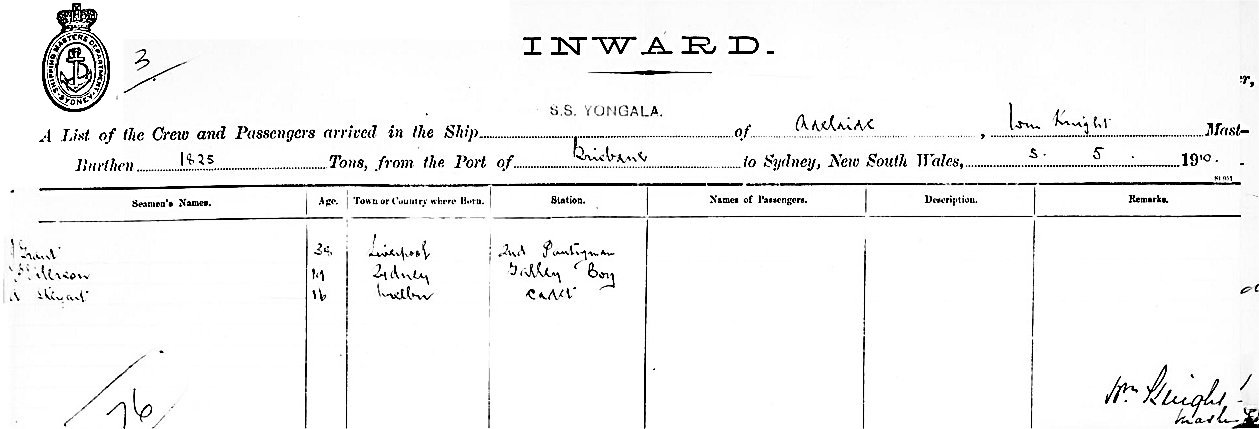 SHIPPING MASTERS DEPARTMENT SYDNEY
3
INWARD.
S.S. YONGALA.
A List of the Crew and Passengers arrived in the Ship of Adelaide, Wm Knight Mast
er,
Burthen 1825 Tons, from the Port of Brisbane to Sydney, New South Wales, 5. 5. 1910.
Seamen's Names. Age. Town or Country where Born. Station. Names of Passengers. Description. Remarks.
Grant Liverpool 2nd Pantryman
19 Sydney Galley Boy
Stewart 16 Melbn Cadet
76
Wm Knight
Master